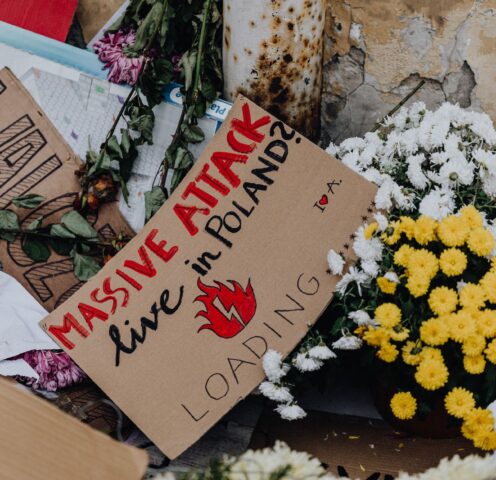 MASSIVE ATTACK
live in POLAND?
I ♥ A.
LOADING